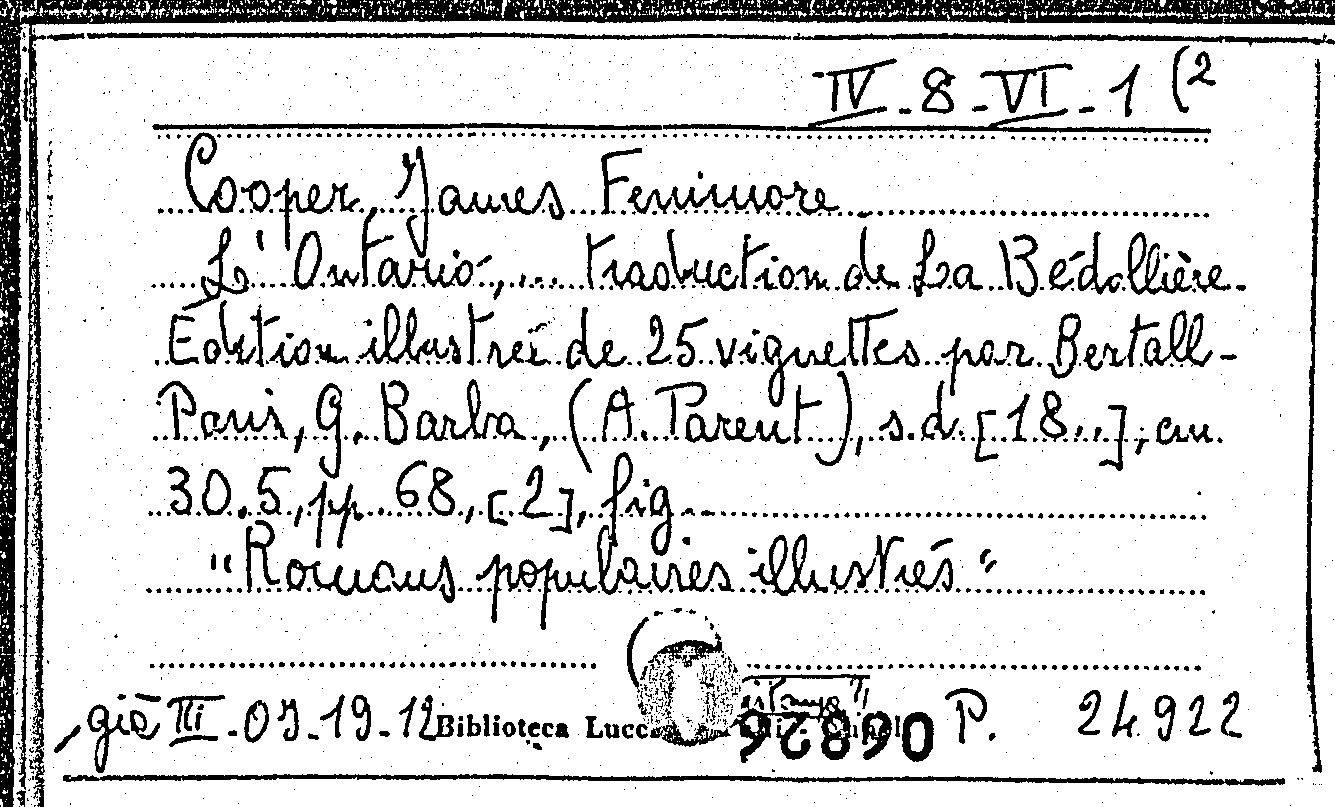 IV-8-VI-1 (2
Cooper, James Fenimore
L'Ontario,... traduction de La Bédollière.
Édition illustrée de 25 vignettes par Bertall-
Paris, G. Barba, (A. Parent), s.d. [18..], cm.
30.5, pp. 68, [2], fig.
"Romans populaires illustrés"
già III-07-19-12 Biblioteca 06826 P. 24922